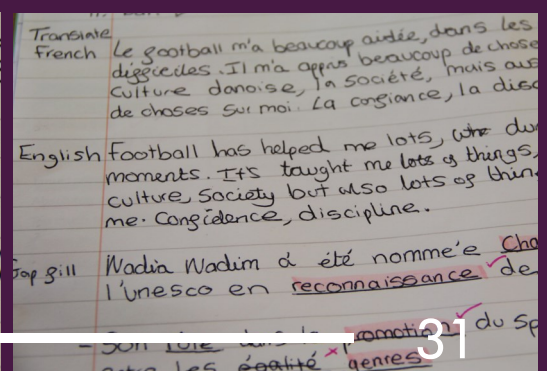 Translate
French Le football m'a beaucoup aidée, dans les
difficiles. Il m'a appris beaucoup de chose
culture danoise, la société, mais aus
de choses sur moi. La confiance, la disc
English Football has helped me lots, du
moments. It's taught me lots of things,
culture, society but also lots of thin
me. Confidence, discipline.
Gap fill Nadia Nadim a été nommée Cha
l'Unesco en reconnaissance de
- Son rôle dans la promotion du sp
entre les égalité genres
31